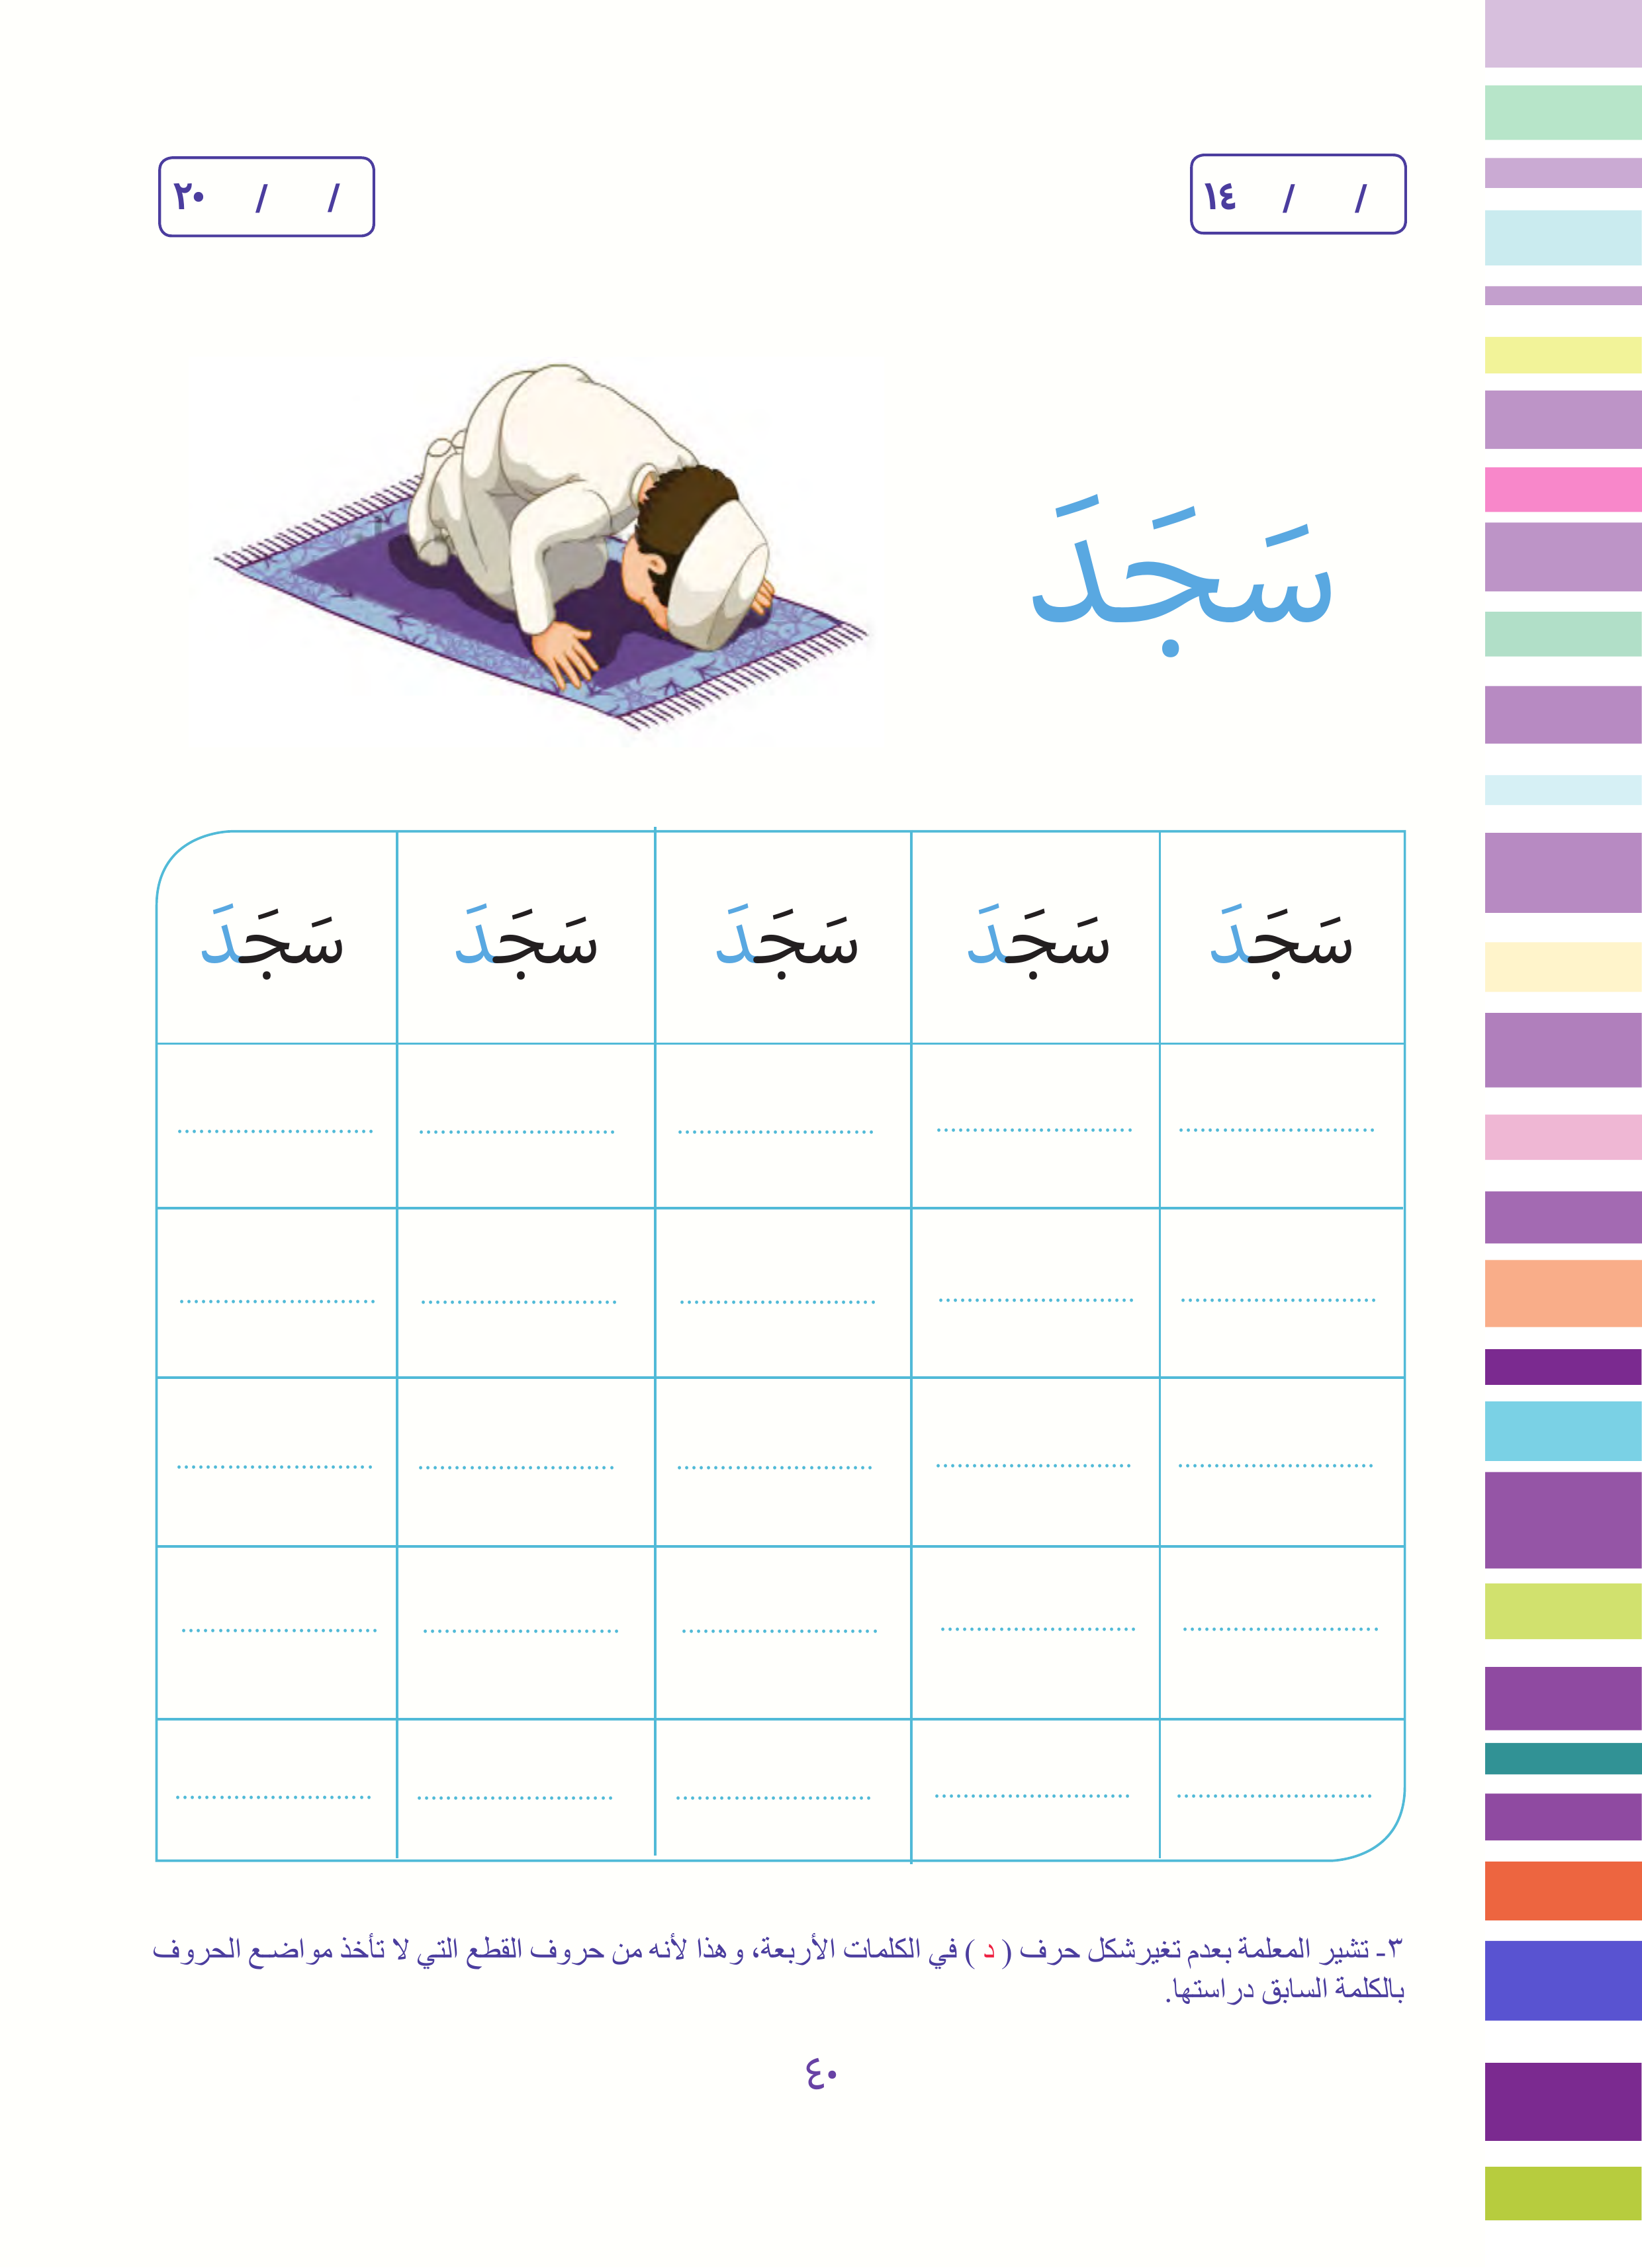 / / ١٤
/ / ٢٠
سَجَدَ
سَجَدَ سَجَدَ سَجَدَ سَجَدَ سَجَدَ
٣- تشير المعلمة بعدم تغيرشكل حرف ( د ) في الكلمات الأربعة، وهذا لأنه من حروف القطع التي لا تأخذ مواضع الحروف
بالكلمة السابق دراستها.
٤٠